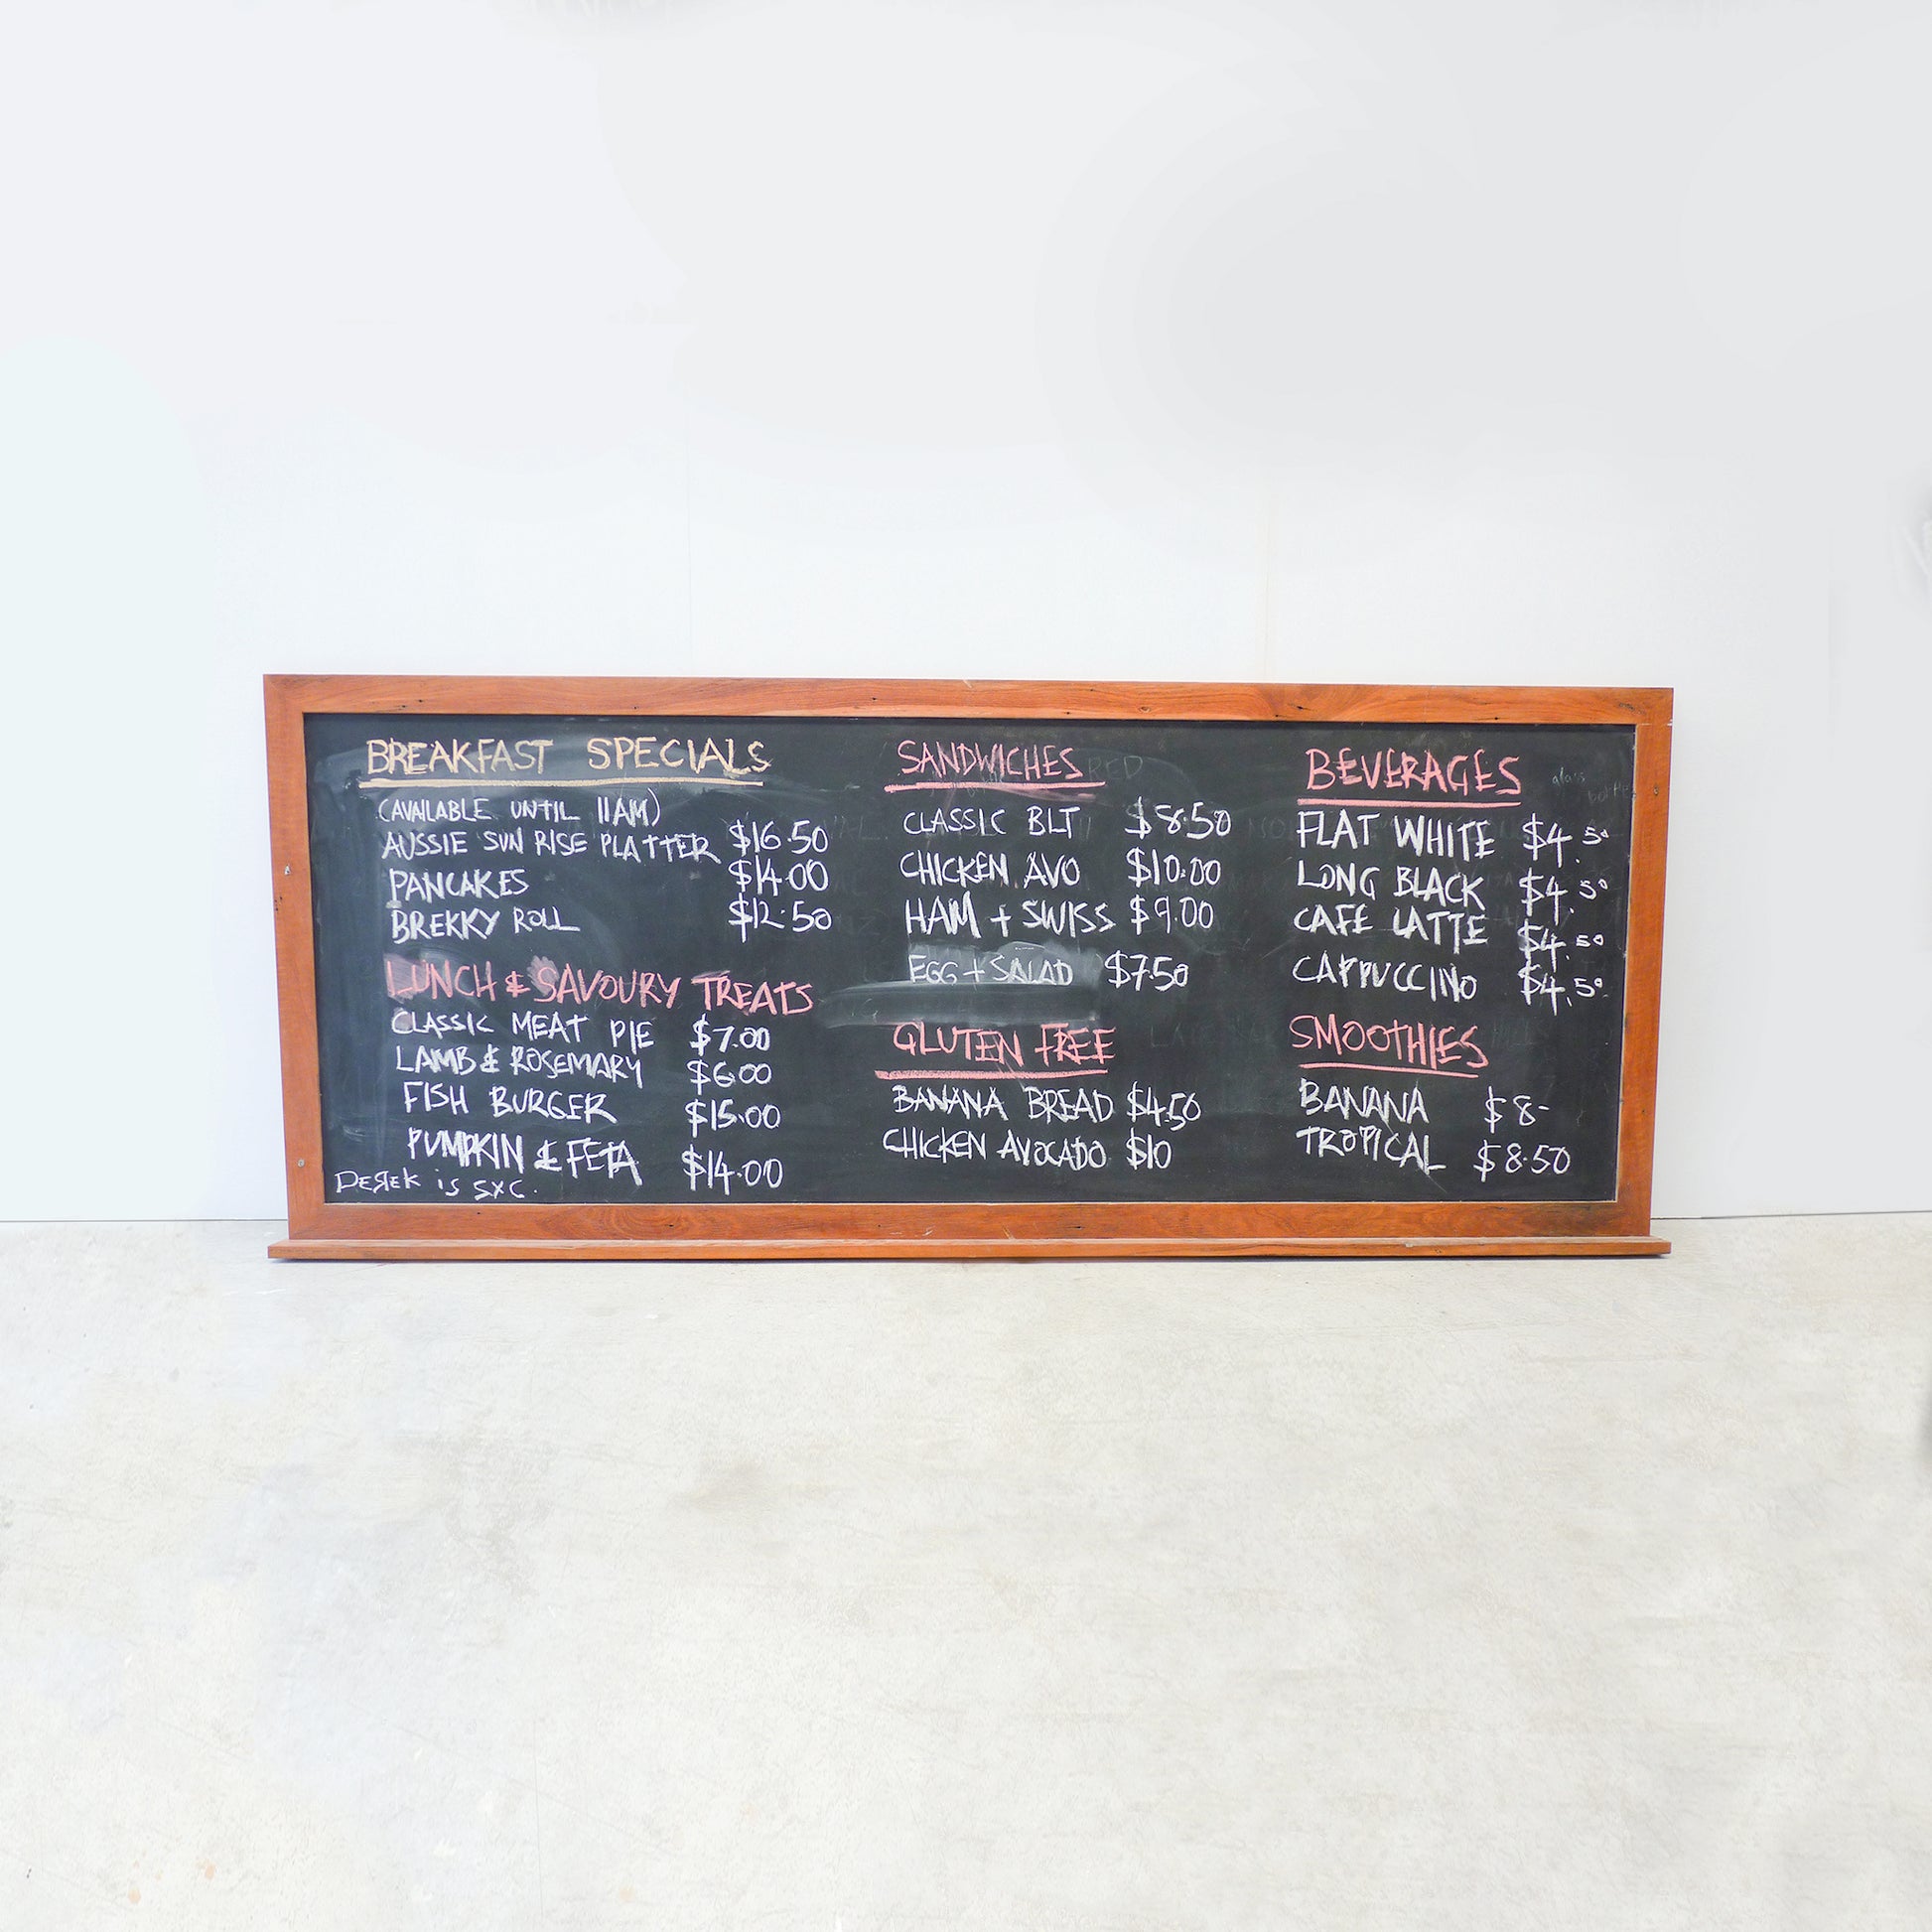 BREAKFAST SPECIALS
(AVAILABLE UNTIL 11AM)
AUSSIE SUN RISE PLATTER $16.50
PANCAKES $14.00
BREKKY ROLL $12.50
LUNCH & SAVOURY TREATS
CLASSIC MEAT PIE $7.00
LAMB & ROSEMARY $6.00
FISH BURGER $15.00
PUMPKIN & FETA $14.00
DEREK is SXC.
SANDWICHES
CLASSIC BLT $8.50
CHICKEN AVO $10.00
HAM + SWISS $9.00
EGG + SALAD $7.50
GLUTEN FREE
BANANA BREAD $4.50
CHICKEN AVOCADO $10
BEVERAGES
glass
FLAT WHITE $4.50
LONG BLACK $4.50
CAFE LATTE $4.50
CAPPUCCINO $4.50
SMOOTHIES
BANANA $8-
TROPICAL $8.50